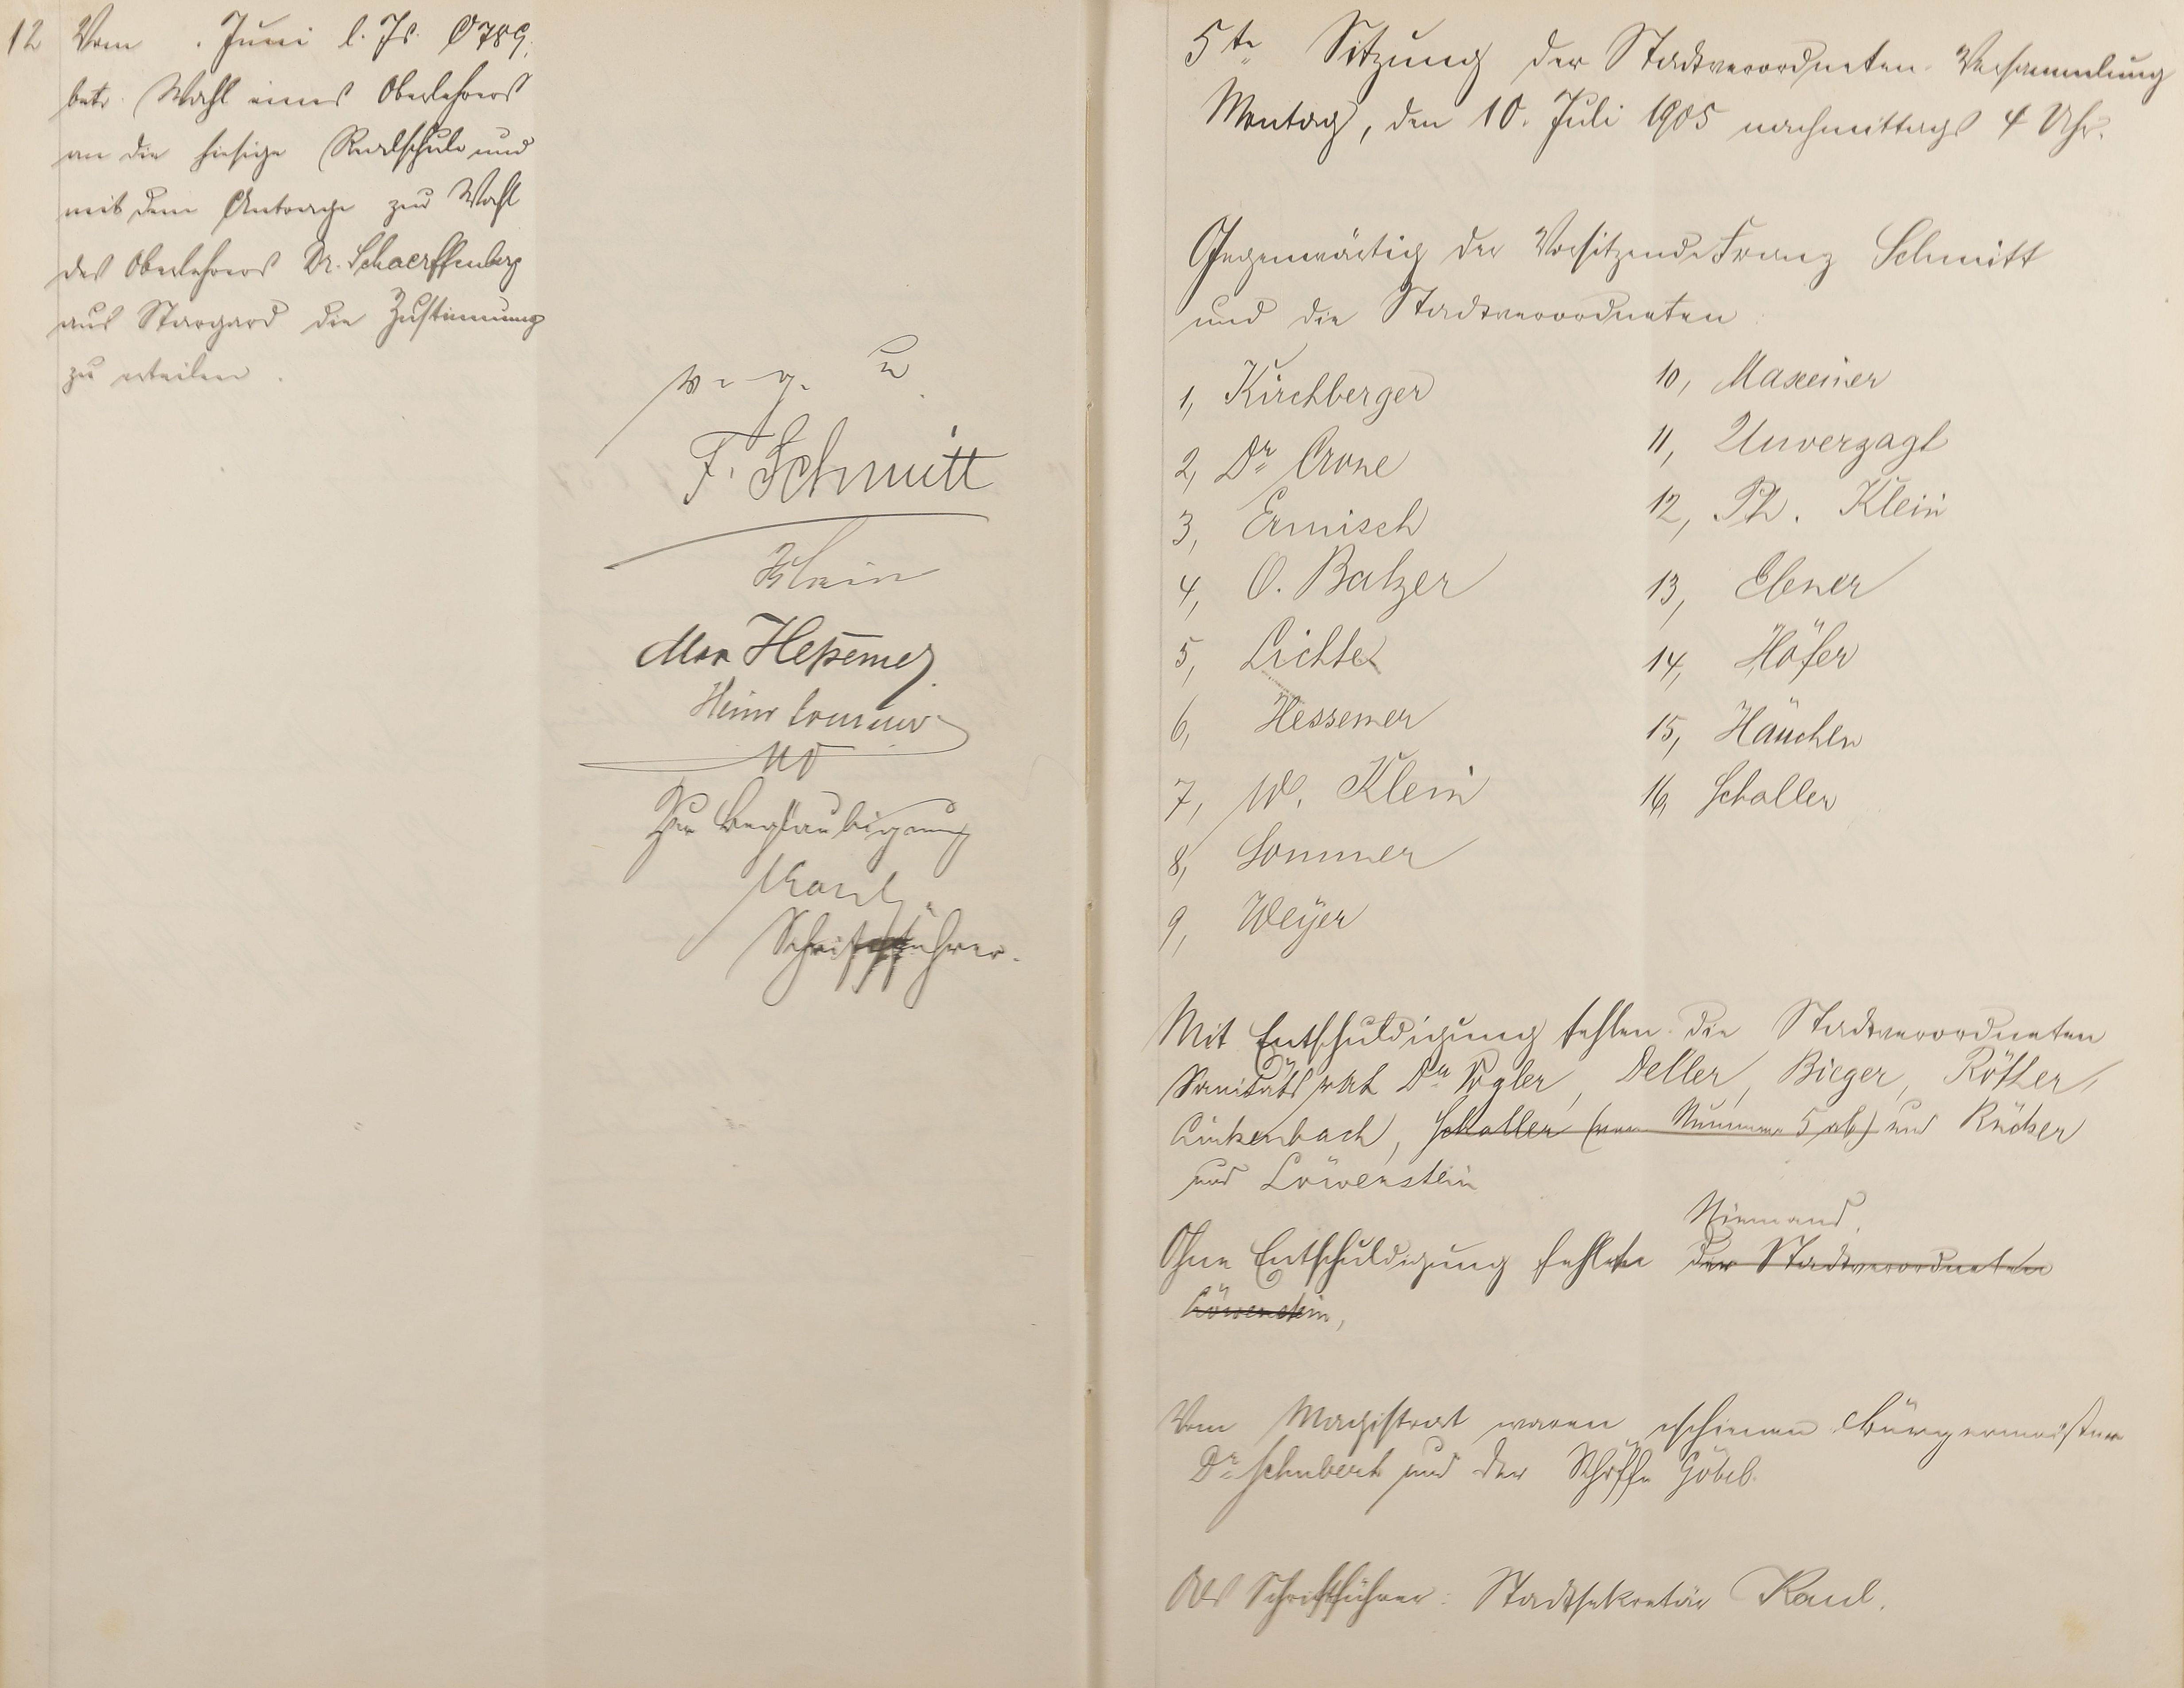 12 Vom . Juni l. Js. O 789,
betr. Wahl eines Oberlehrers
an die hiesige Realschule und
mit dem Antrage zur Wahl
des Oberlehrers Dr. Schaerffenberg
aus Stargard die Zustimmung
zu erteilen.
v. g. u.
F. Schmitt
Klein
Max Hessemer
Heinr Sommer
Zur Beglaubigung
Kaul,
Schriftführer.
5te Sitzung der Stadtverordneten-Versammlung
Montag, den 10. Juli 1905 nachmittags 4 Uhr.
Gegenwärtig der Vorsitzende Franz Schmitt
und die Stadtverordneten:
1, Kirchberger
2, Dr Crone
3, Ermisch
4, O. Balzer
5, Lichte
6, Hessemer
7, W. Klein
8, Sommer
9, Weyer
10, Maxeiner
11, Unverzagt
12, Ph. Klein
13, Ebner
14, Höfer
15, Häuchen
16, Schaller
Mit Entschuldigung fehlen die Stadtverordneten
Sanitätsrat Dr Vogler, Deller, Bieger, Röther,
Linkenbach, Schaller (von Nummer 5 ab) und Rücker
und Löwenstein
Niemand.
Ohne Entschuldigung fehlte der Stadtverordneten
Löwenstein,
Vom Magistrat waren erschienen Bürgermeister
Dr Schubert und der Schöffe Göbel.
Als Schriftführer: Stadtsekretär Kaul.